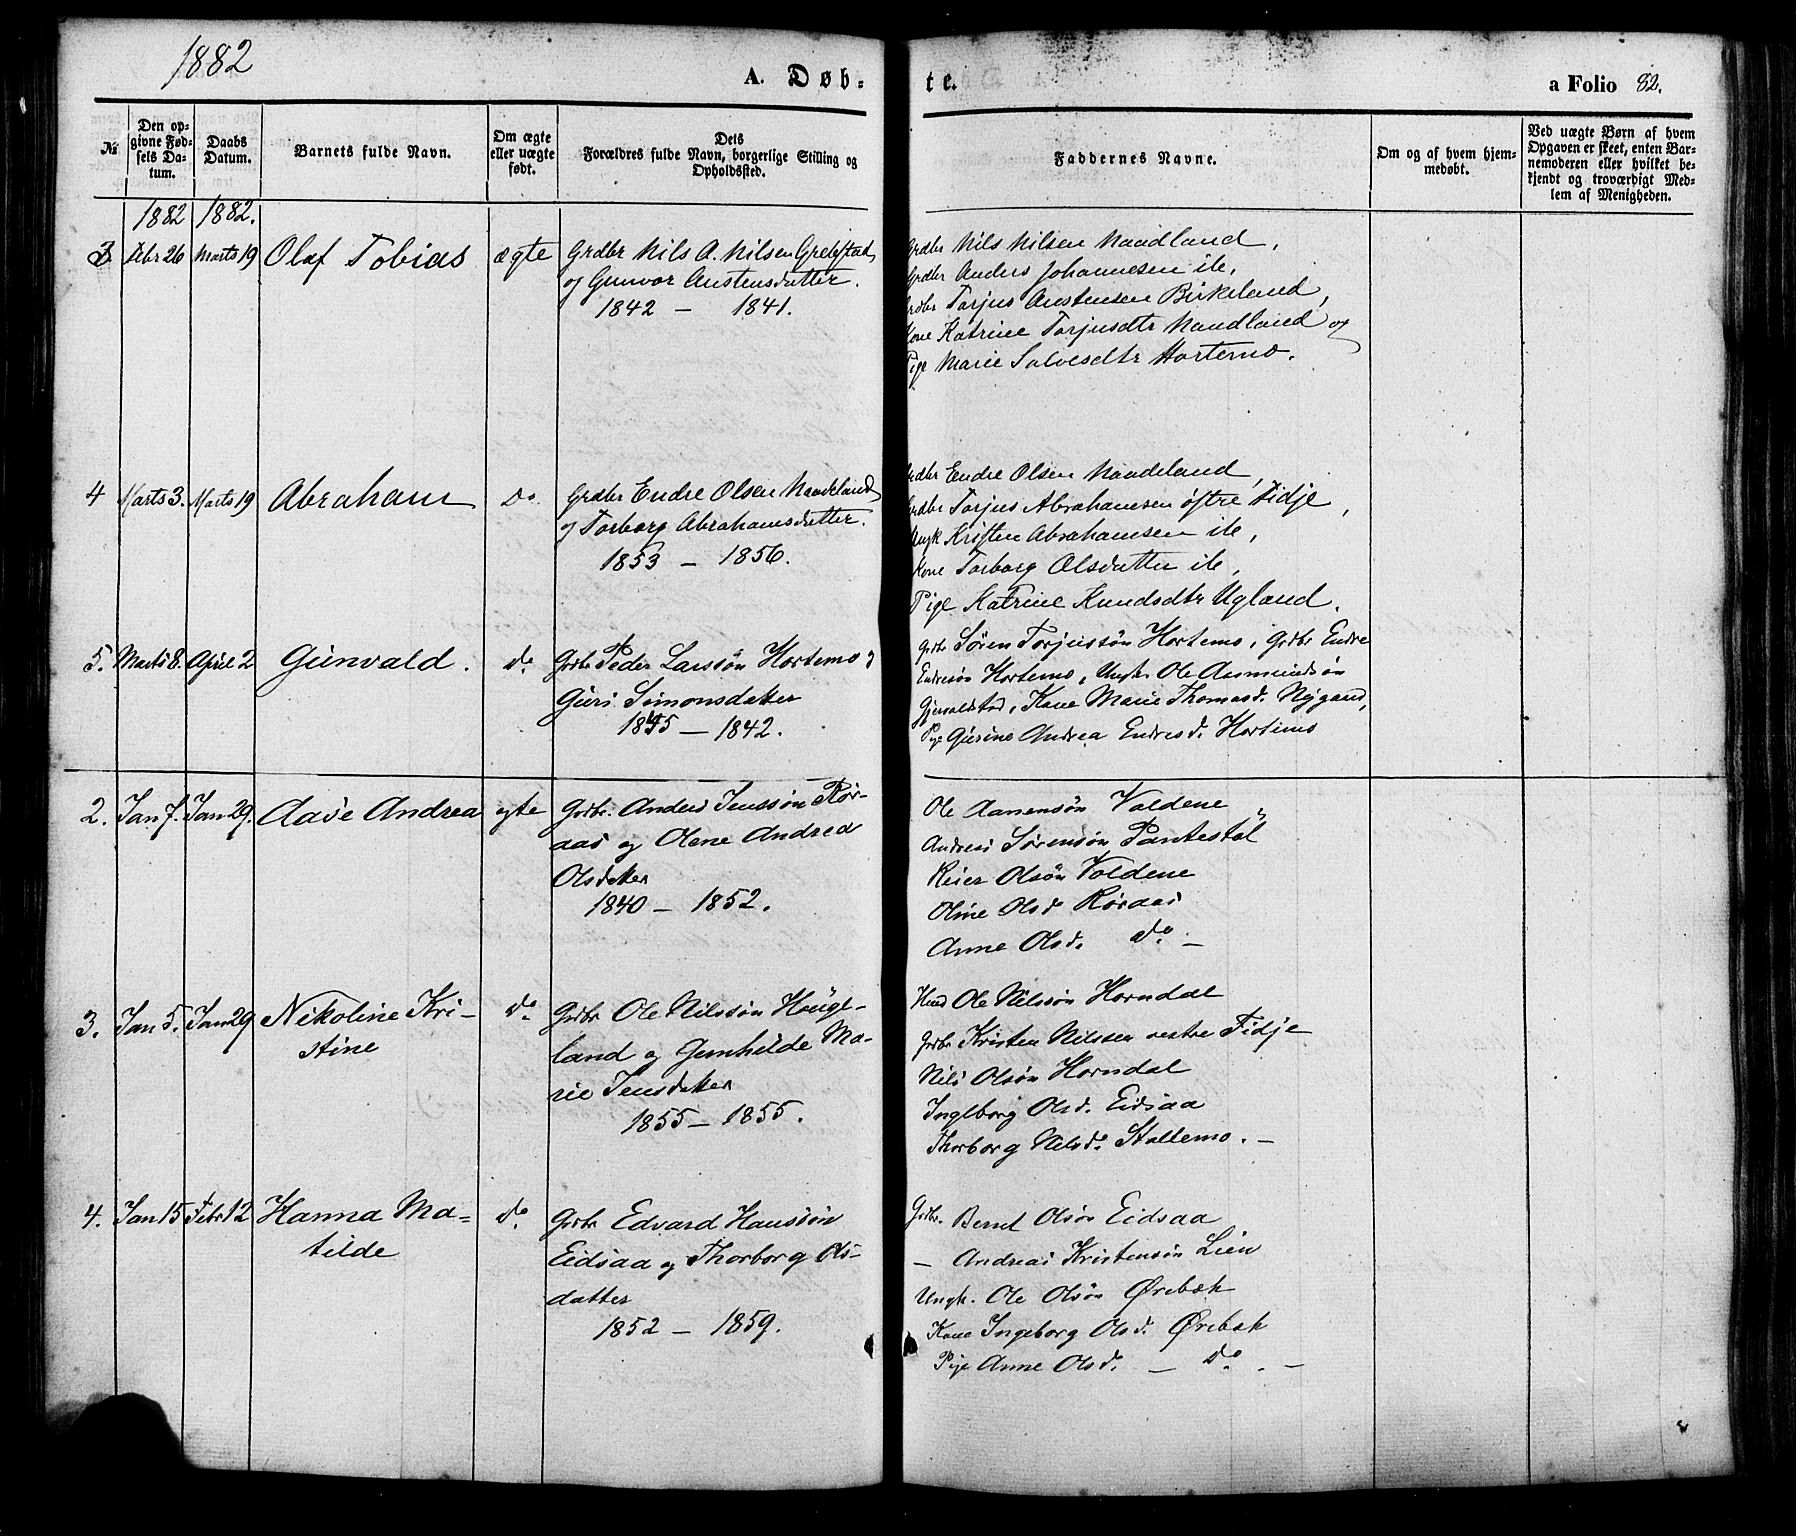 1882
A. Døb-
te.
a Folio 82.
№
Den op-
givne Fød-
sels Da-
tum.
Daabs
Datum.
Barnets fulde Navn.
Om ægte
eller uægte
født.
Dets
Forældres fulde Navn, borgerlige Stilling og
Opholdssted.
Faddernes Navne.
Om og af hvem hjem-
medøbt.
Ved uægte Børn af hvem
Opgaven er skeet, enten Bar-
nemoderen eller hvilket be-
kjendt og troværdigt Med-
lem af Menigheden.
1882 1882.
3 Febr 26 Marts 19 Olaf Tobias ægte Grdbr Nils A. Nilsen
og Gunvor Austensdatter.
1842 — 1841.
Grdbr Nils Nilsen Naadland,
Grdbr Anders Johannesen ib,
Grdbr Torjus Austensen Birkeland,
Kone Katrine Torjusdtr Naadland og
Pige Marie Salvesdtr Hortemo.
4 Marts 3. Marts 19 Abraham do. Grdbr Endre Olsen Naadeland
og Torborg Abrahamsdatter.
1853 — 1856.
Grdbr Endre Olsen Naadeland,
Grdbr Torjus Abrahamsen østre Tidje,
Ungk Kristen Abrahamsen ib,
Kone Torborg Olsdatter ib,
Pige Katrine Knudsdtr Ugland.
5. Marts 8. April 2 Gunvald. do. Grdbr Peder Larssøn Hortemo og
Guri Simonsdatter
1845 — 1842.
Grdbr Søren Torjussøn Hortemo, Grdbr Endre
Endresøn Hortemo, Ungk. Ole Aanmundsøn
Gjervaldstad, Kone Marie Thomasd. Nygaard,
Pige Gurine Andrea Endresd. Hortemo
2. Jan 7. Jan 29. Aase Andrea ægte Grdbr. Anders Jenssøn Rør-
aas og Olene Andrea
Olsdatter
1840 — 1852.
Ole Aanensøn Valdene
Andreas Sørensøn Pantestøl
Reier Olsøn Voldene
Oline Olsd Røraas
Anne Olsd. do —
3. Jan 5. Jan 29 Nikoline Kri-
stine do. Grdbr Ole Nilssøn Houge-
land og Gunhilde Ma-
rie Jensdatter
1855 — 1855.
Huus Ole Nilssøn Horndal
Grdbr Kristen Nilssen vestre Tidje
Nils Olsøn Horndal
Ingeborg Olsd. Eidsaa
Thorborg Nilsd. Stallemo. —
4. Jan 15 Febr 12 Hanna Ma-
tilde do. Grdbr Edvard Hanssøn
Eidsaa og Thorborg Ols-
datter
1852 — 1859.
Grdbr. Bernt Olsøn Eidsaa
— Andreas Kristensøn Lien
Ungk. Ole Olsøn Ørebæk
Kone Ingeborg Olsd. Ørebæk
Pige Anne Olsd. — do. —